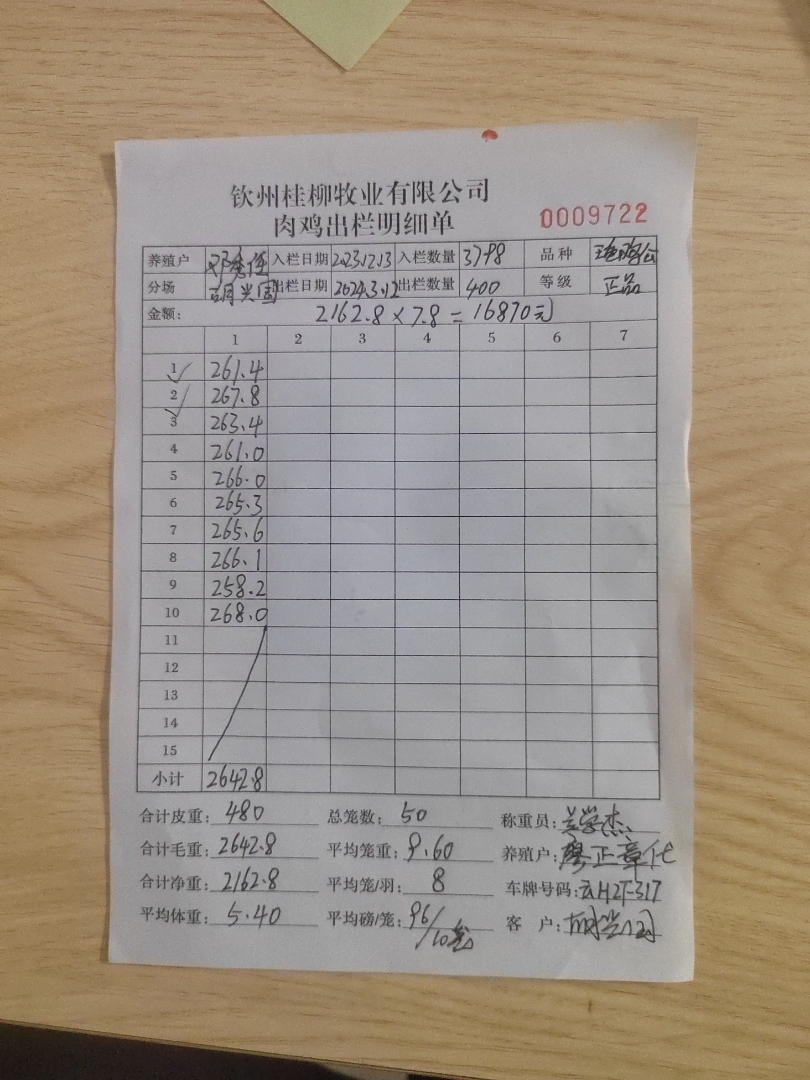 钦州桂柳牧业有限公司
肉鸡出栏明细单
0009722
养殖户 入栏日期 2023.12.13 入栏数量 3798 品种
分场 胡光国 出栏日期 2024.3.12 出栏数量 400 等级 正品
金额: 2162.8×7.8=16870元
1 2 3 4 5 6 7
1 261.4
2 267.8
3 263.4
4 261.0
5 266.0
6 265.3
7 265.6
8 266.1
9 258.2
10 268.0
11
12
13
14
15
小计 2642.8
合计皮重: 480 总笼数: 50 称重员: 兰学杰
合计毛重: 2642.8 平均笼重: 9.60 养殖户: 廖正章代
合计净重: 2162.8 平均笼/羽: 8 车牌号码:
平均体重: 5.40 平均磅/笼: 96/10笼 客户: